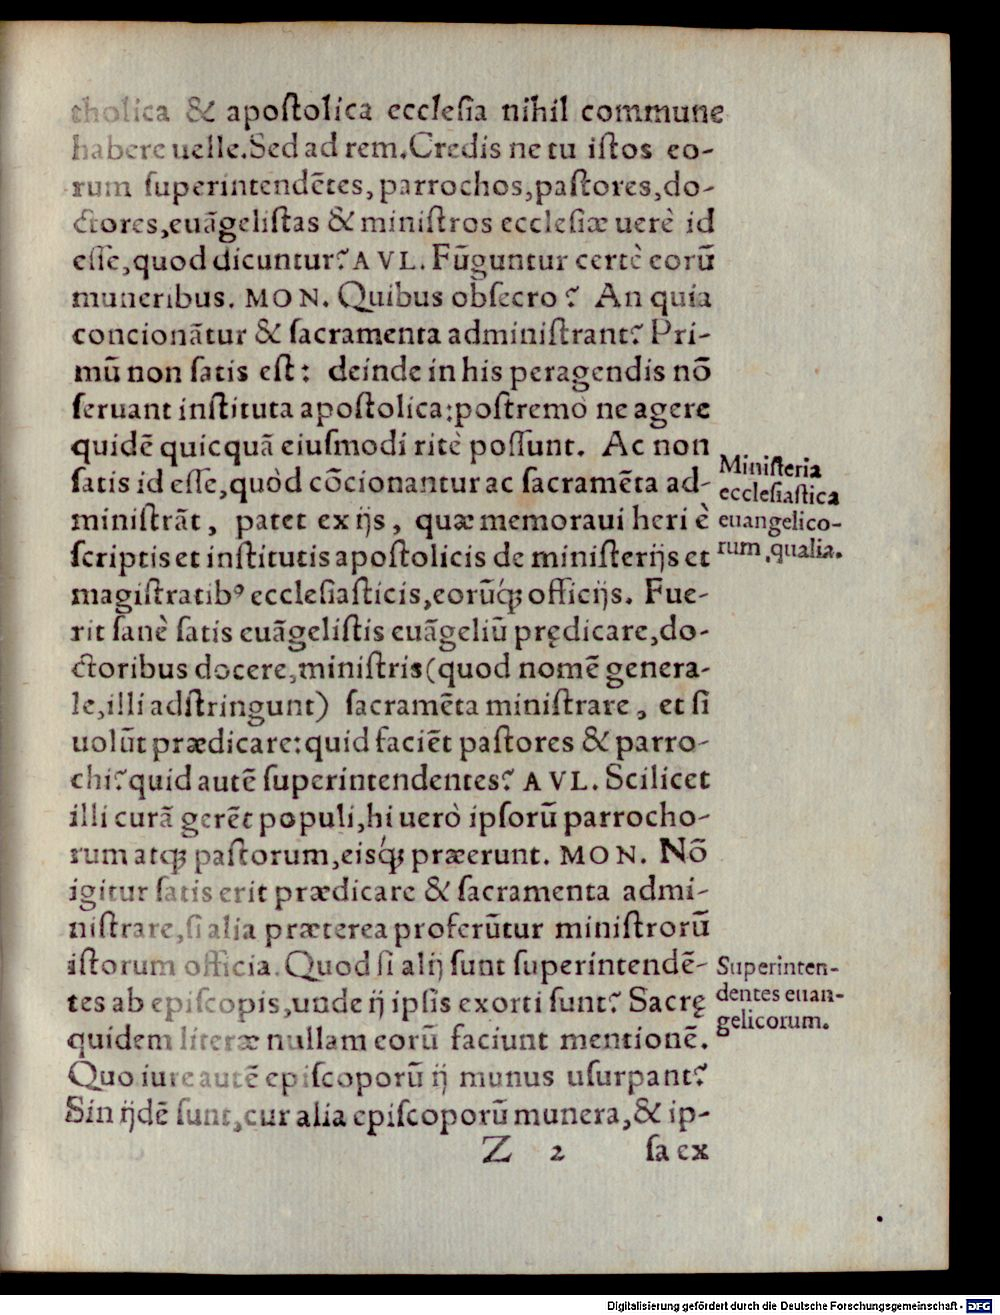 tholica & apoſtolica eccleſia nihil commune
habere uelle. Sed ad rem. Credis ne tu iſtos eo-
rum ſuperintendētes, parrochos, paſtores, do-
ctores, euāgeliſtas & miniſtros eccleſiæ uerè id
eſſe, quod dicuntur? AVL. Fūguntur certè eorū
muneribus. MON. Quibus obſecro? An quia
concionātur & ſacramenta adminiſtrant? Pri-
mū non ſatis eſt: deinde in his peragendis nō
ſeruant inſtituta apoſtolica: poſtremò ne agere
quidē quicquā eiuſmodi ritè poſſunt. Ac non
ſatis id eſſe, quòd cōcionantur ac ſacramēta ad-
miniſtrāt, patet ex ijs, quæ memoraui heri è
ſcriptis et inſtitutis apoſtolicis de miniſterijs et
magiſtratibꝰ eccleſiaſticis, eorūq́ꝫ officijs. Fue-
rit ſanè ſatis euāgeliſtis euāgeliū prędicare, do-
ctoribus docere, miniſtris (quod nomē genera-
le, illi adſtringunt) ſacramēta miniſtrare, et ſi
uolūt prædicare: quid faciēt paſtores & parro-
chi? quid autē ſuperintendentes? AVL. Scilicet
illi curā gerēt populi, hi uerò ipſorū parrocho-
rum atqꝫ paſtorum, eisq́ꝫ præerunt. MON. Nō
igitur ſatis erit prædicare & ſacramenta admi-
niſtrare, ſi alia præterea proferūtur miniſtrorū
iſtorum officia. Quod ſi alij ſunt ſuperintendē-
tes ab epiſcopis, unde ij ipſis exorti ſunt? Sacrę
quidem literæ nullam eorū faciunt mentionē.
Quo iure autē epiſcoporū ij munus uſurpant?
Sin ijdē ſunt, cur alia epiſcoporū munera, & ip-
Z 2 ſa ex
Miniſteria
eccleſiaſtica
euangelico-
rum, qualia.
Superinten-
dentes euan-
gelicorum.
Digitalisierung gefördert durch die Deutsche Forschungsgemeinschaft - DFG